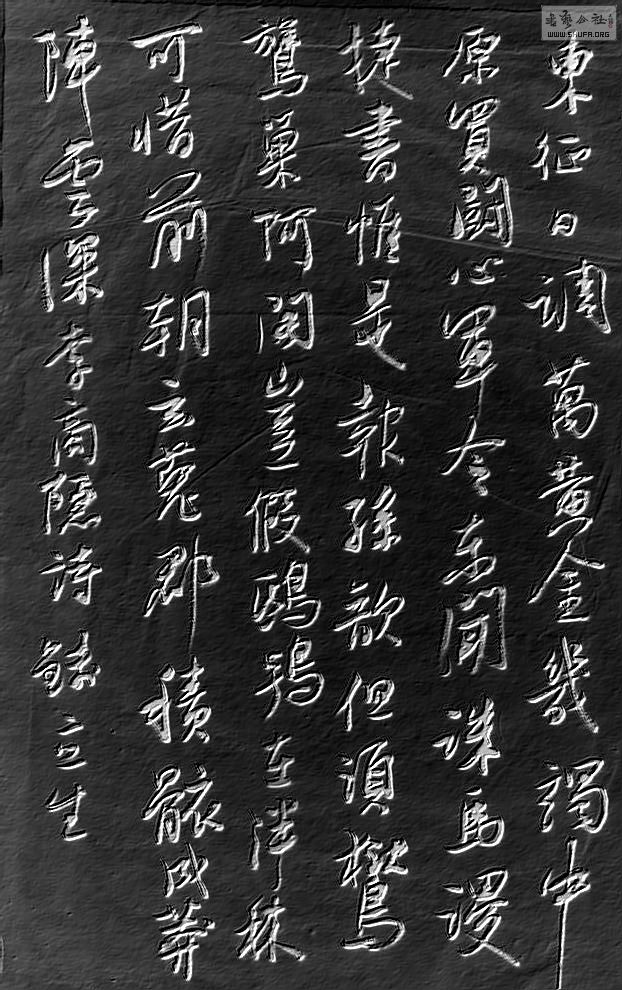 東征日調萬黃金幾竭中
原買鬪心軍令未聞誅馬謖
捷書惟是報孫歆但須鸑
鷟巢阿閣豈假鴟鴞在泮林
可惜前朝玄菟郡積骸成莽
陣雲深李商隱詩 立生
书艺公社
WWW.SHUFA.ORG